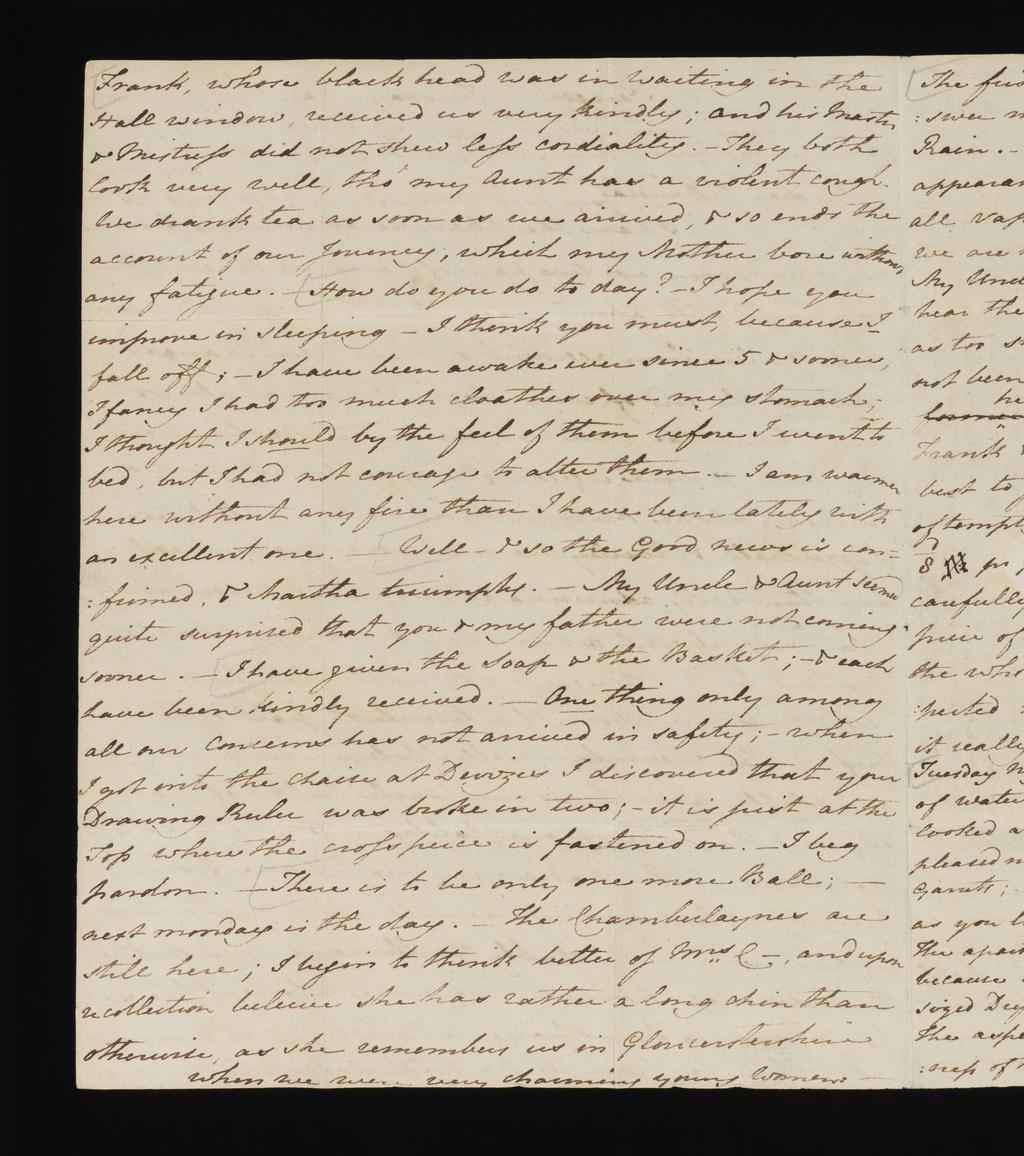 Frank, whose black head was in waiting in the
Hall window, received us very kindly; and his Master
& Mistress did not shew less cordiality. – They both
look very well, tho' my Aunt has a violent cough.
We drank tea as soon as we arrived, & so ends the
account of our Journey, which my Mother bore without
any fatigue. – How do you do to day? – I hope you
improve in sleeping – I think you must, because I
fall off; – I have been awake ever since 5 & sooner,
I fancy I had too much cloathes over my stomach;
I thought I should by the feel of them before I went to
bed, but I had not courage to alter them. – I am warmer
here without any fire than I have been lately with
an excellent one. – Well – & so the Good news is con=
:firmed, & Martha triumphs. – My Uncle & Aunt seemed
quite surprised that you & my father were not coming
sooner. – I have given the Soap & the Basket; – & each
have been kindly received. – One thing only among
all our Concerns has not arrived in safety; – when
I got into the Chaise at Devizes I discovered that your
Drawing Ruler was broke in two; – it is just at the
Top where the cross peice is fastened on. – I beg
pardon. – There is to be only one more Ball; –
next monday is the day. – The Chamberlaynes are
still here; I begin to think better of Mrs. C –, and upon
recollection beleive she has rather a long chin than
otherwise, as she remembers us in Gloucestershire
when we were very charming young Women –
The
:swer
Rain. –
all
we are
My
hear the
as too
not been
he
Frank
best to
of
8
carefully
peice of
the
:pected
it really
Tuesday
of water
looked
pleased
Garrets;
as you
The
because
sized
The
:ness of